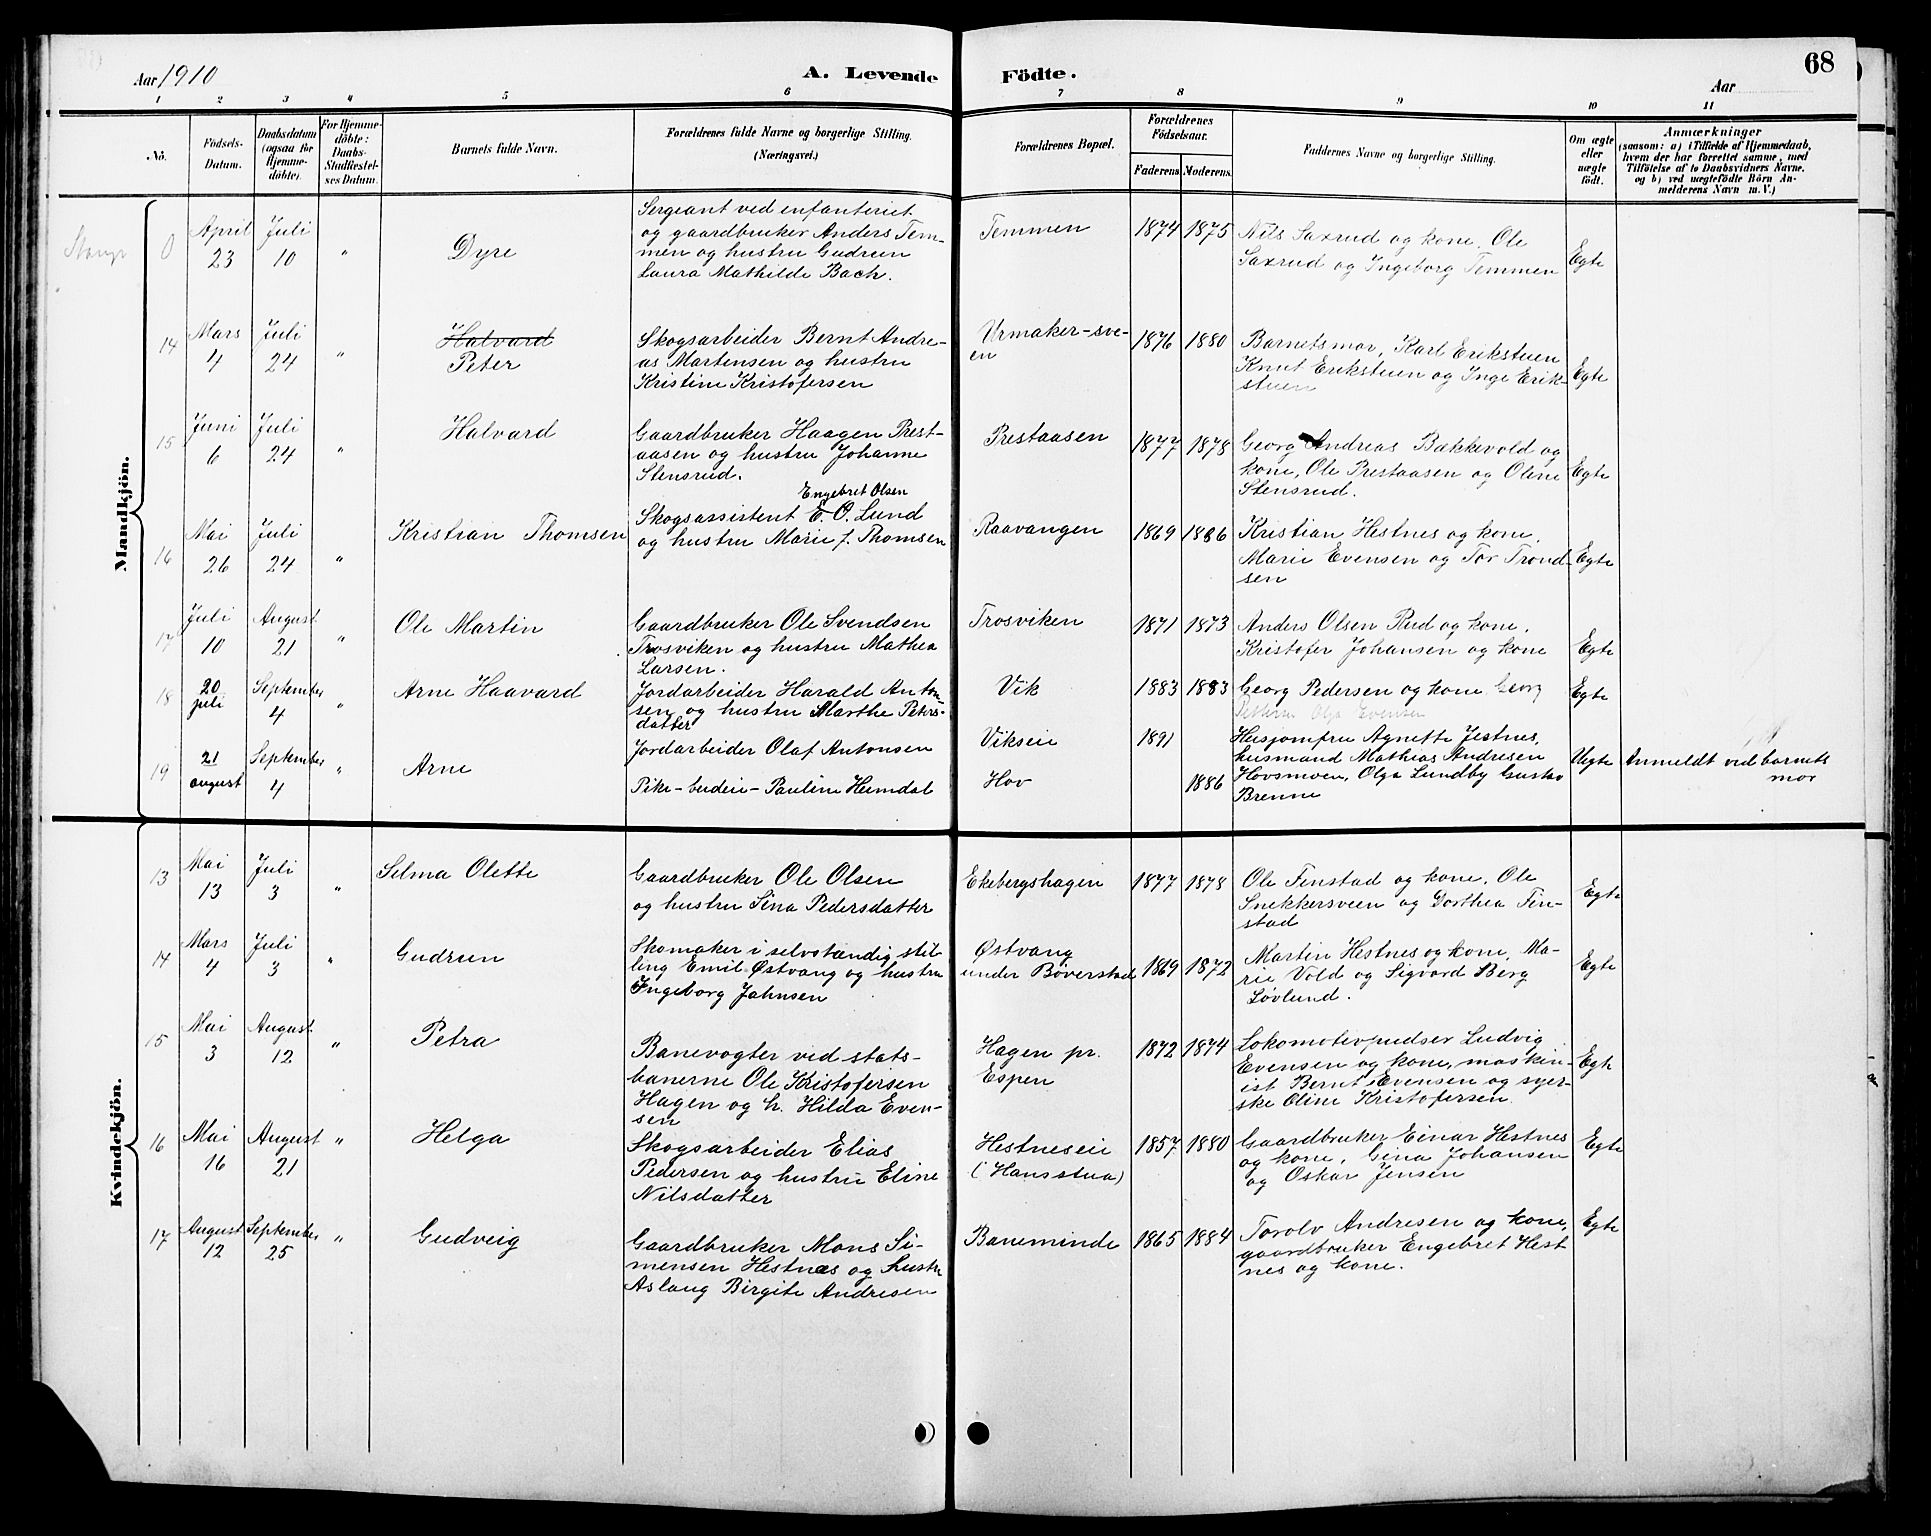 Aar 1910
A. Levende
Födte.
Aar
68
1 2 3 4 5 6 7 8 9 10 11
No.
Födsels-
Datum.
Daabsdatum
(ogsaa for
Hjemme-
döbte).
For Hjemme-
döbte:
Daabs-
Stadfæstel-
ses Datum.
Barnets fulde Navn.
Forældrenes fulde Navne og borgerlige Stilling.
(Næringsvei.)
Forældrenes Bopæl.
Forældrenes
Födselsaar.
Faderens
Moderens
Faddernes Navne og borgerlige Stilling.
Om ægte
eller
uægte
födt.
Anmærkninger
(saasom: a) i Tilfælde af Hjemmedaab,
hvem der har forrettet samme, med
Tilföielse af to Daabsvidners Navne.
og b) ved uægtefödte Börn An-
melderens Navn m. V.)
Mandkjön.
Stange
0
April
23
Juli
10
"
Dyre
Sergeant ved infanteriet
og gaardbruker Anders Tem-
men og hustru Gudrun
Laura Mathilde Bach.
Temmen
1874 1875
Nils Saxrud og kone, Ole
Saxrud og Ingeborg Temmen
Egte
14
Mars
4
Juli
24
"
Halvard
Peter
Skogsarbeider Bernt Andre-
as Martensen og hustru
Kristine Kristofersen
Urmaker-sve-
en
1876 1880
Barnets mor, Karl Erikstuen
Knut Erikstuen og Inge Erik-
stuen
Egte
15
Juni
6
Juli
24
"
Halvard
Gaardbruker Haagen Prest-
aasen og hustru Johanne
Stensrud.
Prestaasen
1877 1878
Georg Andreas Bækkevold og
kone, Ole Prestaasen og Oline
Stensrud.
Egte
16
Mai
26
Juli
24
"
Kristian Thomsen
Engebret Olsen
Skogsassistent E. O. Lund
og hustru Marie f. Thomsen
Raavangen
1869 1886
Kristian Hestnes og kone,
Marie Evensen og Tor Trond-
sen
Egte
17
Juli
10
August
21
"
Ole Martin
Gaardbruker Ole Svendsen
Trosviken og hustru Mathea
Larsen.
Trosviken
1871 1873
Anders Olsen Rud og kone,
Kristofer Johansen og kone
Egte
18
20
juli
September
4
"
Arne Haavard
Jordarbeider Harald Anton-
sen og hustru Marthe Peters-
datter
Vik
1883 1883
Georg Pedersen og kone, Georg
Petersen Olga Evensen
Egte
19
21
august
September
4
"
Arne
Jordarbeider Olaf Antonsen
Pike - budeie - Pauline Heimdal
Vikseie
Hov
1891
1886
Husjomfru Agnette Jestnes,
husmand Mathias Andresen
Hovsmoen, Olga Lundby Gustav
Brenne
Uegte
Anmeldt ved barnets
mor
Kvindekjön.
13
Mai
13
Juli
3
"
Selma Olette
Gaardbruker Ole Olsen
og hustru Sina Pedersdatter
Ekebergshagen
1877 1878
Ole Finstad og kone, Ole
Snekkersveen og Dorthea Fin-
stad
Egte
14
Mars
4
Juli
3
"
Gudrun
Skomaker i selvstændig stil-
ling Emil Østvang og hustru
Ingeborg Jahnsen
Østvang
under Bøverstad
1869 1872
Martin Hestnes og kone, Ma-
rie Vold og Sigvard Berg
Løvlund.
Egte
15
Mai
3
August
12
"
Petra
Banevogter ved stats-
banerne Ole Kristofersen
Hagen og h. Hilda Even-
sen
Hagen pr.
Espen
1872 1874
Lokomotivpudser Ludvig
Evensen og kone, maskin-
ist Bernt Evensen og syer-
ske Oline Kristofersen
Egte
16
Mai
16
August
21
"
Helga
Skogsarbeider Elias
Pedersen og hustru Eline
Nilsdatter
Hestneseie
(Hansstua)
1857 1880
Gaardbruker Einar Hestnes
og kone, Gina Johansen
og Oskar Jensen
Egte
17
August
12
September
25
"
Gudveig
Gaardbruker Mons Si-
mensen Hestnæs og hustru
Aslaug Birgite Andresen
Baneminde
1865 1884
Torolv Andresen og kone,
gaardbruker Engebret Hest
nes og kone.
Egte